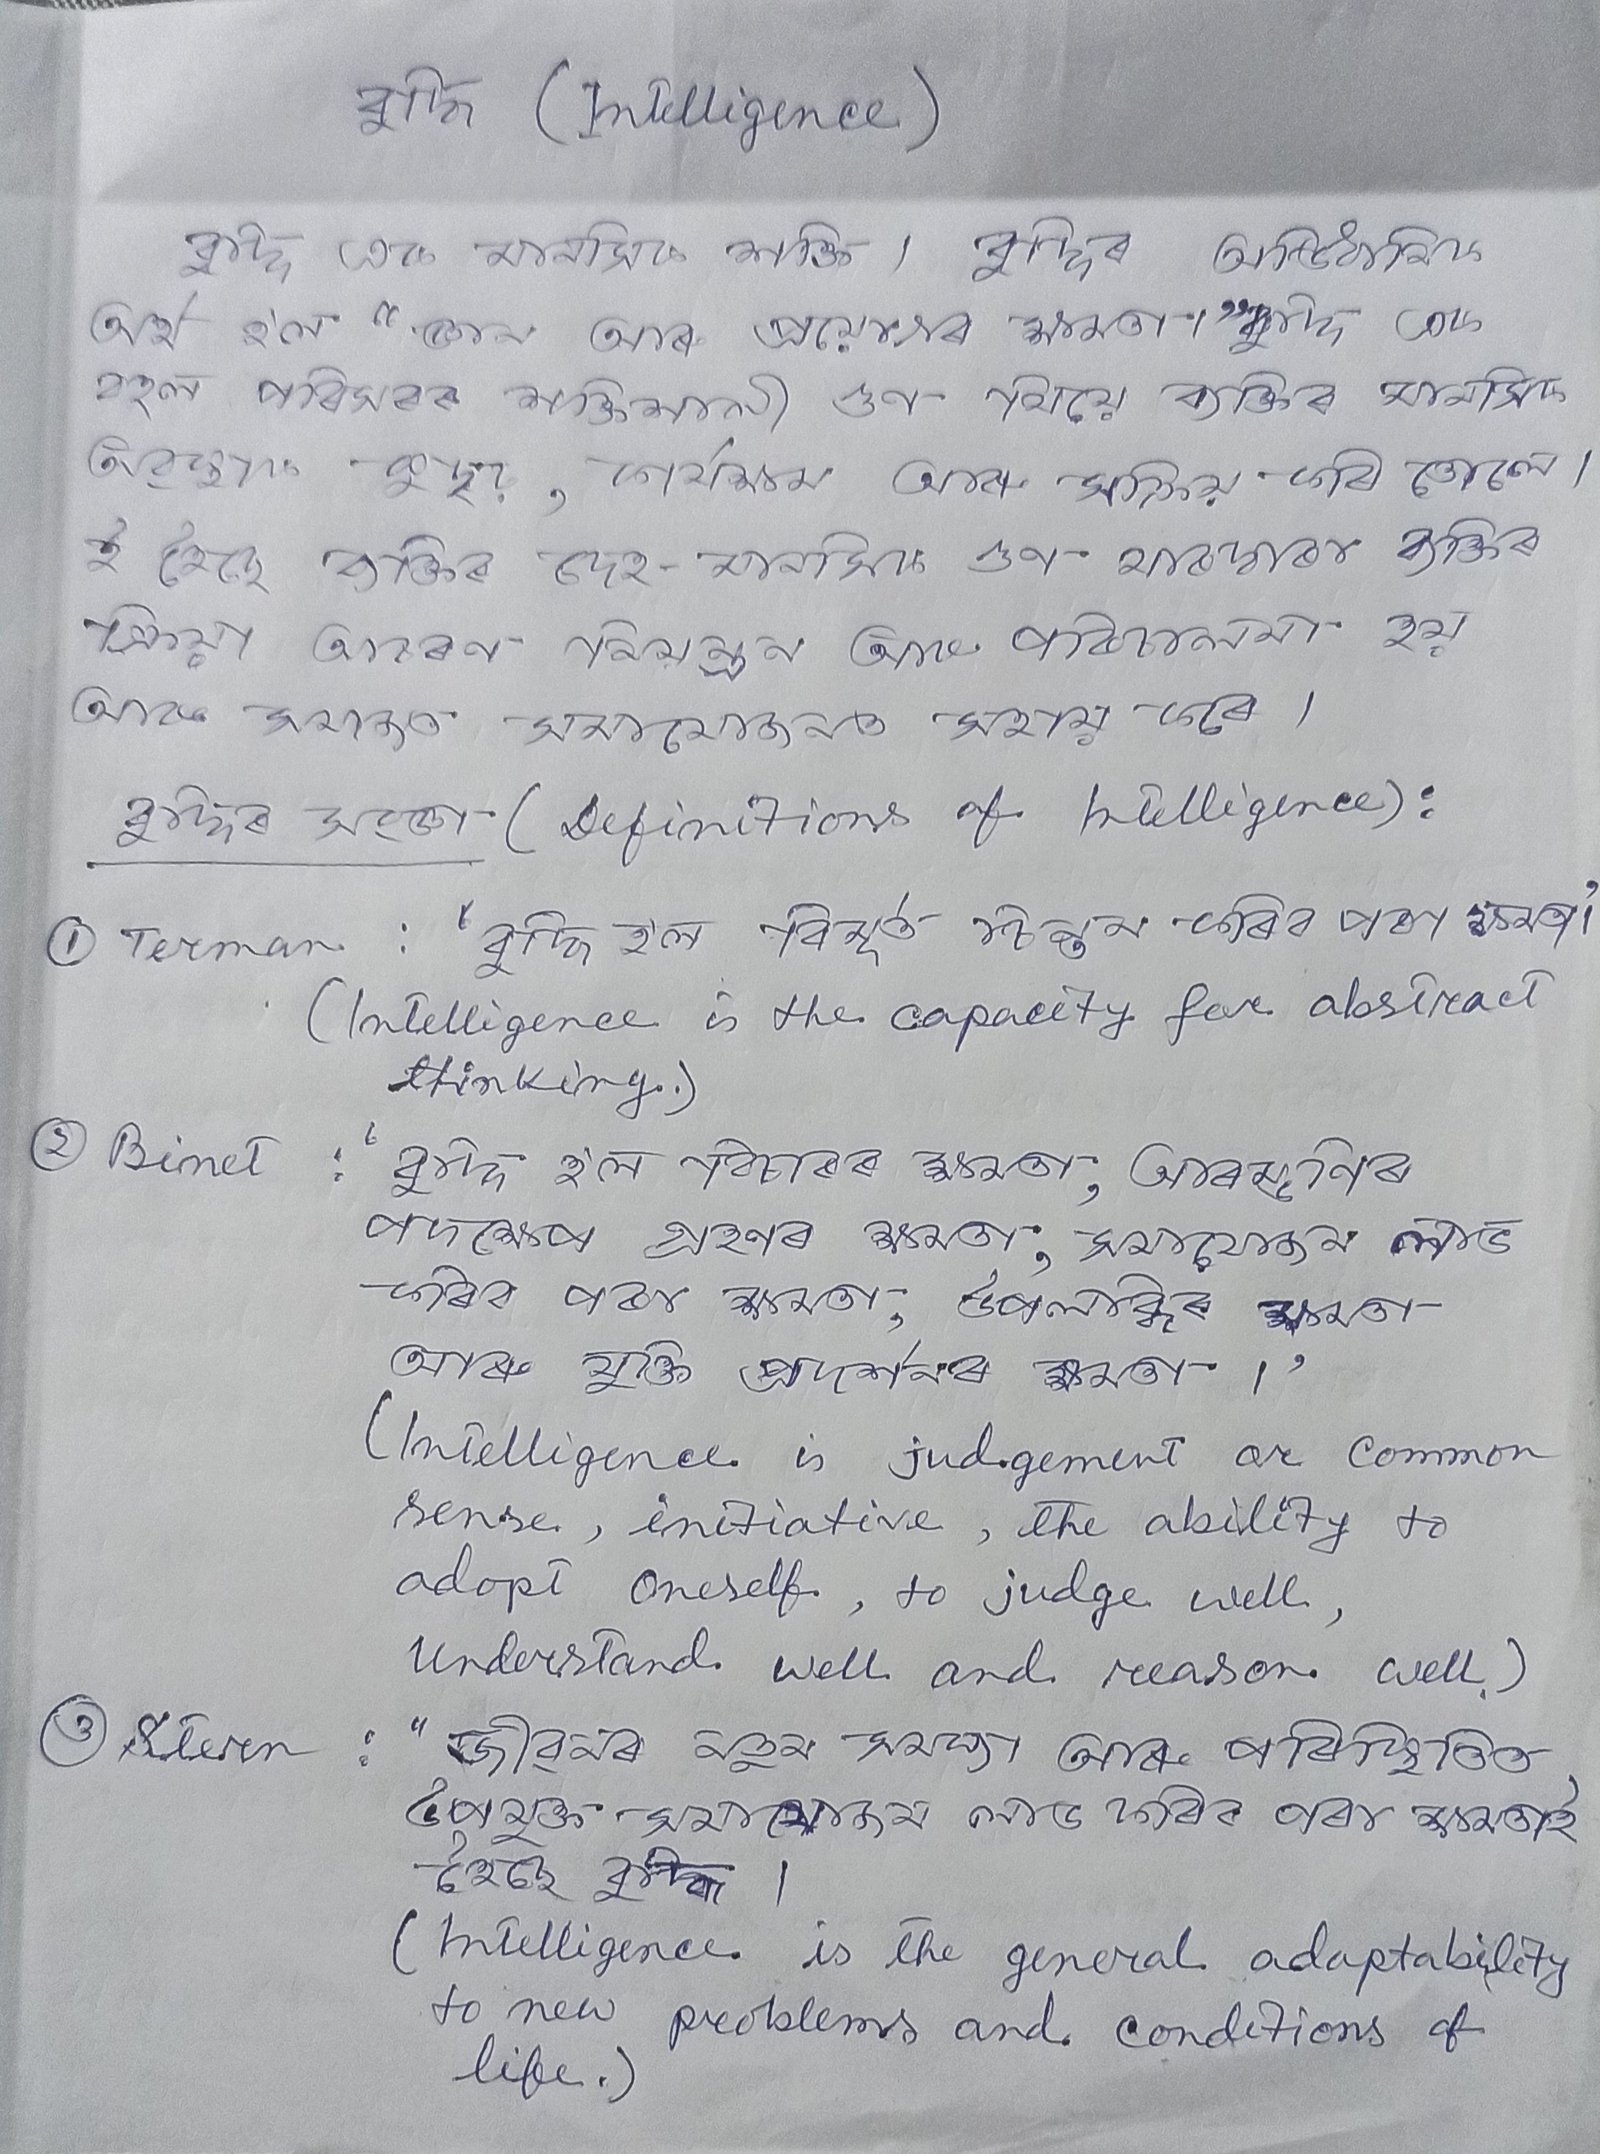 বুদ্ধি (Intelligence)
বুদ্ধি এক মানসিক শক্তি । বুদ্ধিৰ আভিধানিক
অৰ্থ হ'ল "জ্ঞান আৰু প্ৰয়োগৰ ক্ষমতা।" বুদ্ধি এক
বহল পৰিসৰৰ শক্তিশালী গুণ যিয়ে ব্যক্তিৰ মানসিক
অৱস্থাক , কাৰ্যক্ষম আৰু সক্ৰিয় কৰি তোলে ।
ই হৈছে ব্যক্তিৰ দেহ-মানসিক গুণ যাৰদ্বাৰা ব্যক্তিৰ
ক্ৰিয়া আচৰণ নিয়ন্ত্ৰন আৰু পৰিচালনা হয়
আৰু সমাজত সমাযোজনত সহায় কৰে ।
বুদ্ধিৰ সংজ্ঞা (Definitions of Intelligence):
① Terman : 'বুদ্ধি হ'ল বিমূৰ্ত চিন্তন কৰিব পৰা ক্ষমতা।'
(Intelligence is the capacity for abstract
thinking.)
② Binet : 'বুদ্ধি হ'ল বিচাৰৰ ক্ষমতা, আৰম্ভণিৰ
পদক্ষেপ গ্ৰহণৰ ক্ষমতা, সমাযোজন লাভ
কৰিব পৰা ক্ষমতা, উপলব্ধিৰ ক্ষমতা
আৰু যুক্তি প্ৰদৰ্শনৰ ক্ষমতা ।'
(Intelligence is judgement or common
sense, initiative, the ability to
adopt oneself, to judge well,
understand well and reason well.)
③ Stern : "জীৱনৰ নতুন সমস্যা আৰু পৰিস্থিতিত
উপযুক্ত সমাযোজন লাভ কৰিব পৰা ক্ষমতাই
হৈছে বুদ্ধি ।
(Intelligence is the general adaptability
to new problems and conditions of
life.)